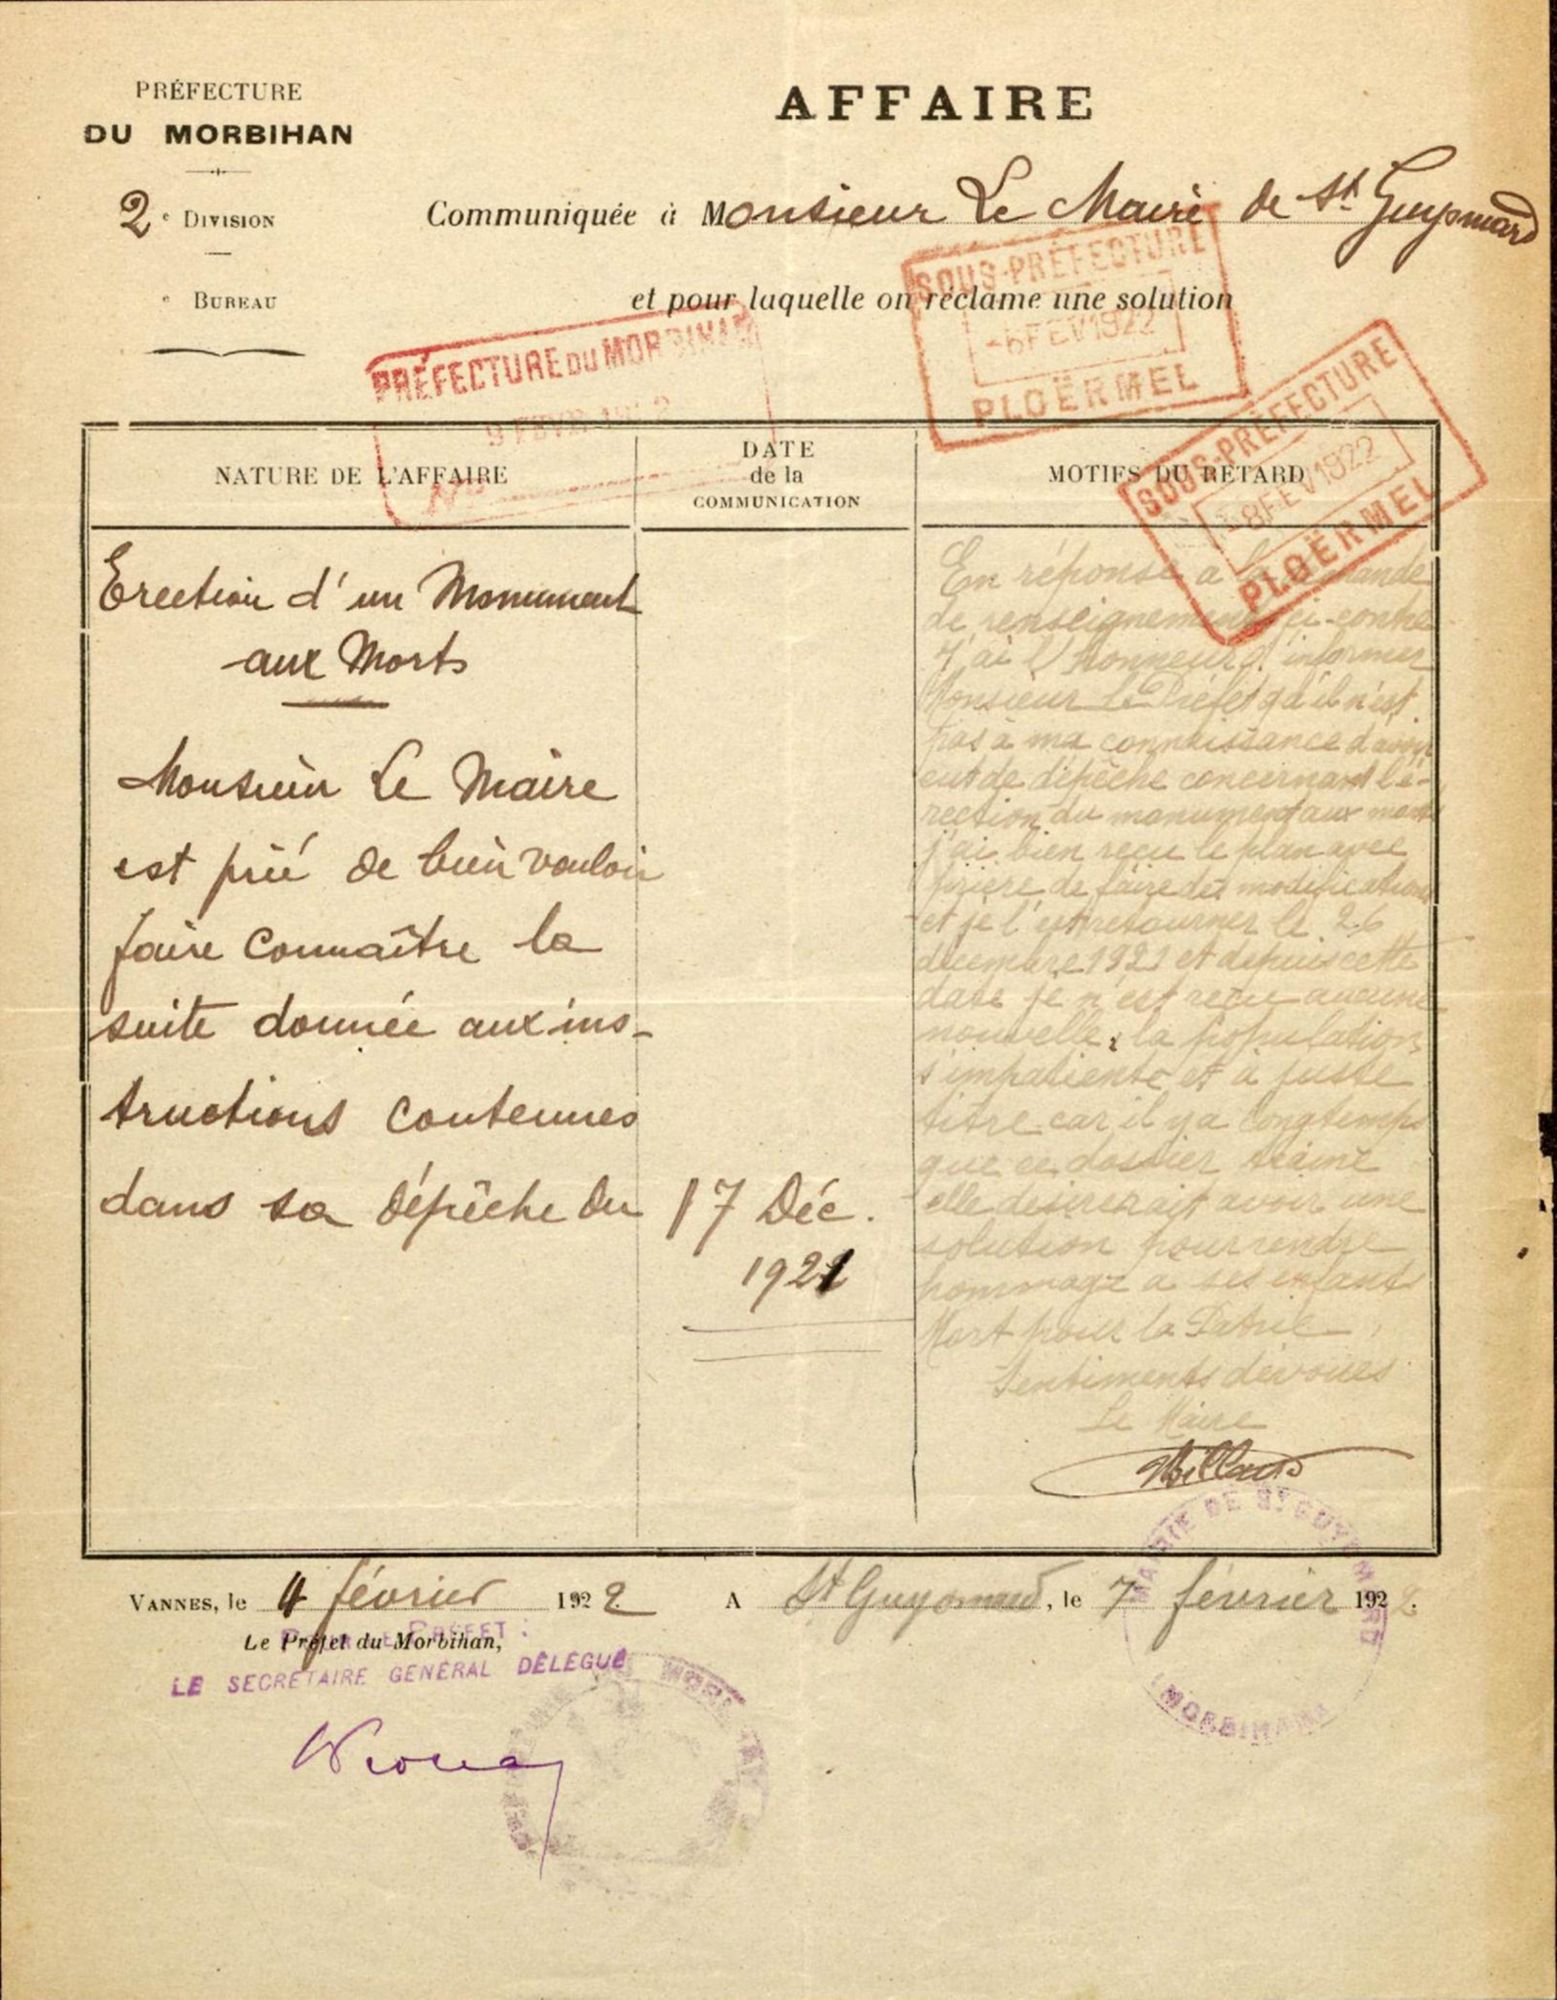 PRÉFECTURE
DU MORBIHAN
2e DIVISION
e BUREAU
AFFAIRE
Communiquée à Monsieur Le Maire de St Guyomard
et pour laquelle on réclame une solution
SOUS-PRÉFECTURE
-6 FEV 1922
PLOËRMEL
PRÉFECTURE DU MORBIHAN
9 FEVR 1922
No
SOUS-PRÉFECTURE
-8 FEV 1922
PLOËRMEL
NATURE DE L'AFFAIRE
DATE
de la
COMMUNICATION
MOTIFS DU RETARD
Erection d'un Monument
aux Morts
Monsieur Le Maire
est prié de bien vouloir
faire connaître la
suite donnée aux ins-
tructions contenues
dans sa dépêche du
17 Déc.
1921
En réponse a la demande
de renseignements ci-contre
J'ai l'honneur d'informer
Monsieur le Préfet qu'il n'est
pas à ma connaissance d'avoir
eut de dépêche concernant l'é-
rection du monument aux morts
j'ai bien reçu le plan avec
prière de faire des modifications
et je l'est retourner le 26
décembre 1921 et depuis cette
date je n'est reçu aucune
nouvelle, la population
s'impatiente et à juste
titre car il y a longtemps
que ce dossier traine
elle désirerait avoir une
solution pour rendre
hommage a ses enfants
Mort pour la Patrie
Sentiments dévoués
Le Maire
VANNES, le 4 février 1922
Le Préfet du Morbihan,
POUR LE PRÉFET :
LE SECRÉTAIRE GÉNÉRAL DÉLÉGUÉ
A St Guyomard, le 7 février 1922.
MAIRIE DE ST GUYOMARD
(MORBIHAN)